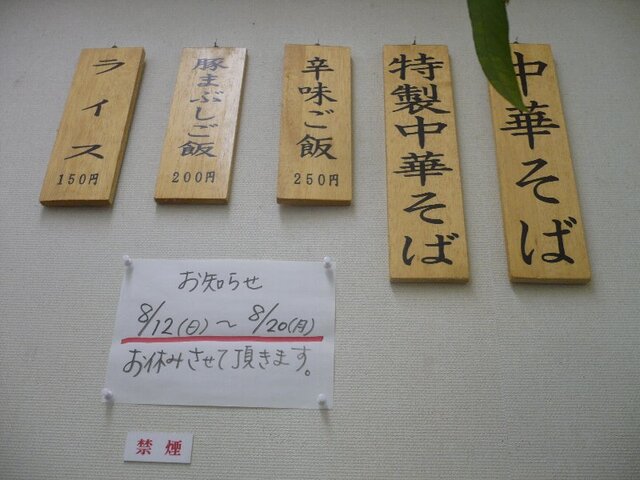 中華そば
特製中華そば
辛味ご飯
250円
豚まぶしご飯
200円
ライス
150円
お知らせ
8/12(日)～8/20(月)
お休みさせて頂きます。
禁煙